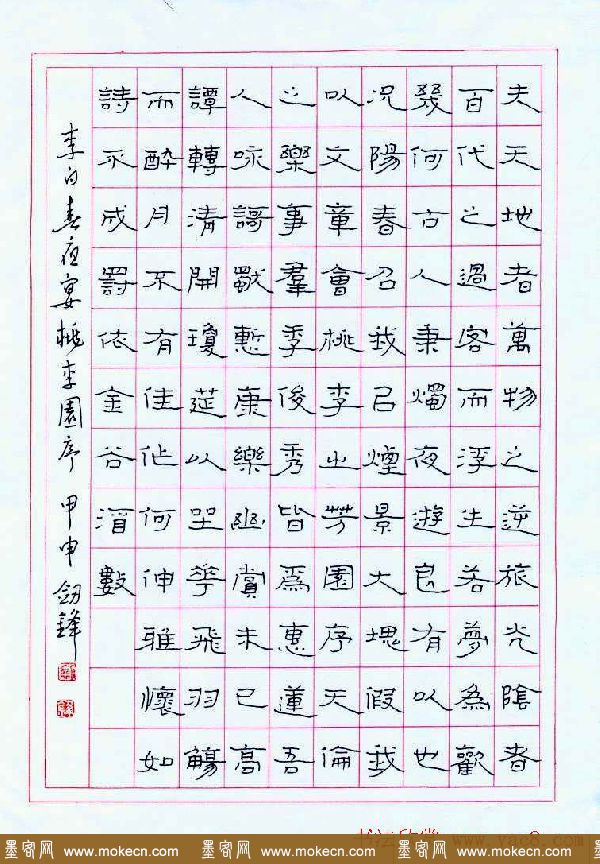 夫天地者萬物之逆旅光陰者
百代之過客而浮生若夢為歡
幾何古人秉燭夜遊良有以也
况陽春召我以煙景大塊假我
以文章會桃李之芳園序天倫
之樂事羣季俊秀皆爲惠蓮吾
人咏謌獨慙康樂幽賞未已高
譚轉清開瓊筵以坐華飛羽觴
而醉月不有佳作何伸雅懷如
詩不成罰依金谷酒數
李白春夜宴桃李園序 甲申 劒鋒
墨客网 www.mokecn.com 墨客网 www.mokecn.com 墨客网 www.mokecn.com